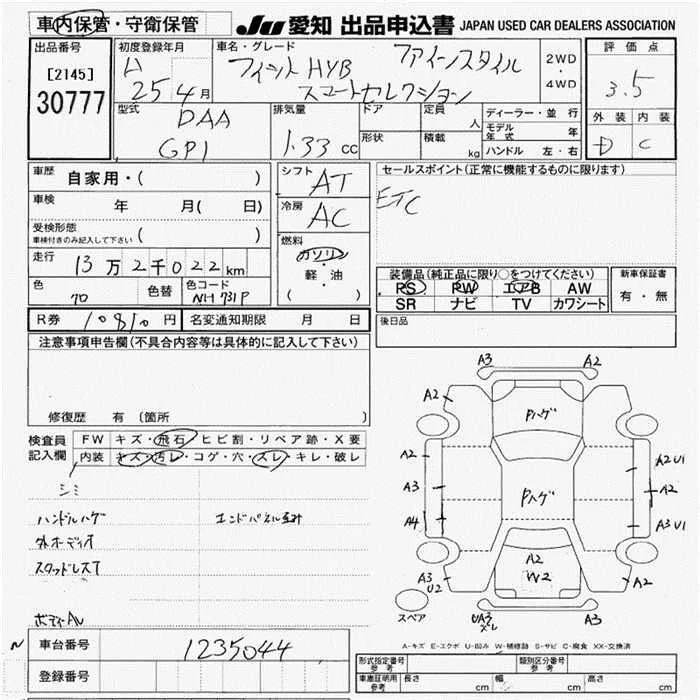 車内保管・守衛保管
JU 愛知 出品申込書 JAPAN USED CAR DEALERS ASSOCIATION
出品番号
[2145]
30777
初度登録年月
H 25年4月
車名・グレード
フィット HYB ファインスタイル
スマートセレクション
2WD
・
4WD
評価点
3.5
外装 内装
D C
型式
DAA
GP1
排気量
1.33 cc
ドア
形状
定員 人
積載 kg
ディーラー・並行
モデル年式 年
ハンドル 左・右
車歴 自家用・( )
車検 年 月( 日)
受検形態
車検付きのみ記入して下さい ( )
走行 13万2千022km
色 色替 色コード
70 NH731P
シフト AT
冷房 AC
燃料
ガソリン
・
軽・油
( )
セールスポイント(正常に機能するものに限ります)
ETC
装備品(純正品に限り○をつけてください)
PS PW エアB AW
SR ナビ TV カワシート
新車保証書
有・無
R券 10810円 名変通知期限 月 日
後日品
注意事項申告欄(不具合内容等は具体的に記入して下さい)
修復歴 有 〔箇所 〕
検査員
記入欄
FW キズ・飛石・ヒビ割・リペア跡・X要
内装 キズ・汚レ・コゲ・穴・スレ・キレ・破レ
シミ
ハンドルハゲ
外オーディオ
スタッドレスT
ボディーAU
A3 A2
A2 A2
Pハゲ
A2 A2 U1
A3 Pハゲ A2
A4 A3 U1
A2
W2
A3
U2
A2
スペア
UA3
スレ
A3
A-キズ E-エクボ U-凹み W-補修跡 S-サビ C-腐食 XX-交換済
N
車台番号 1235044
登録番号
形式指定番号
参考
類別区分番号
参考
車庫証明用
参考
長さ cm 幅 cm 高さ cm